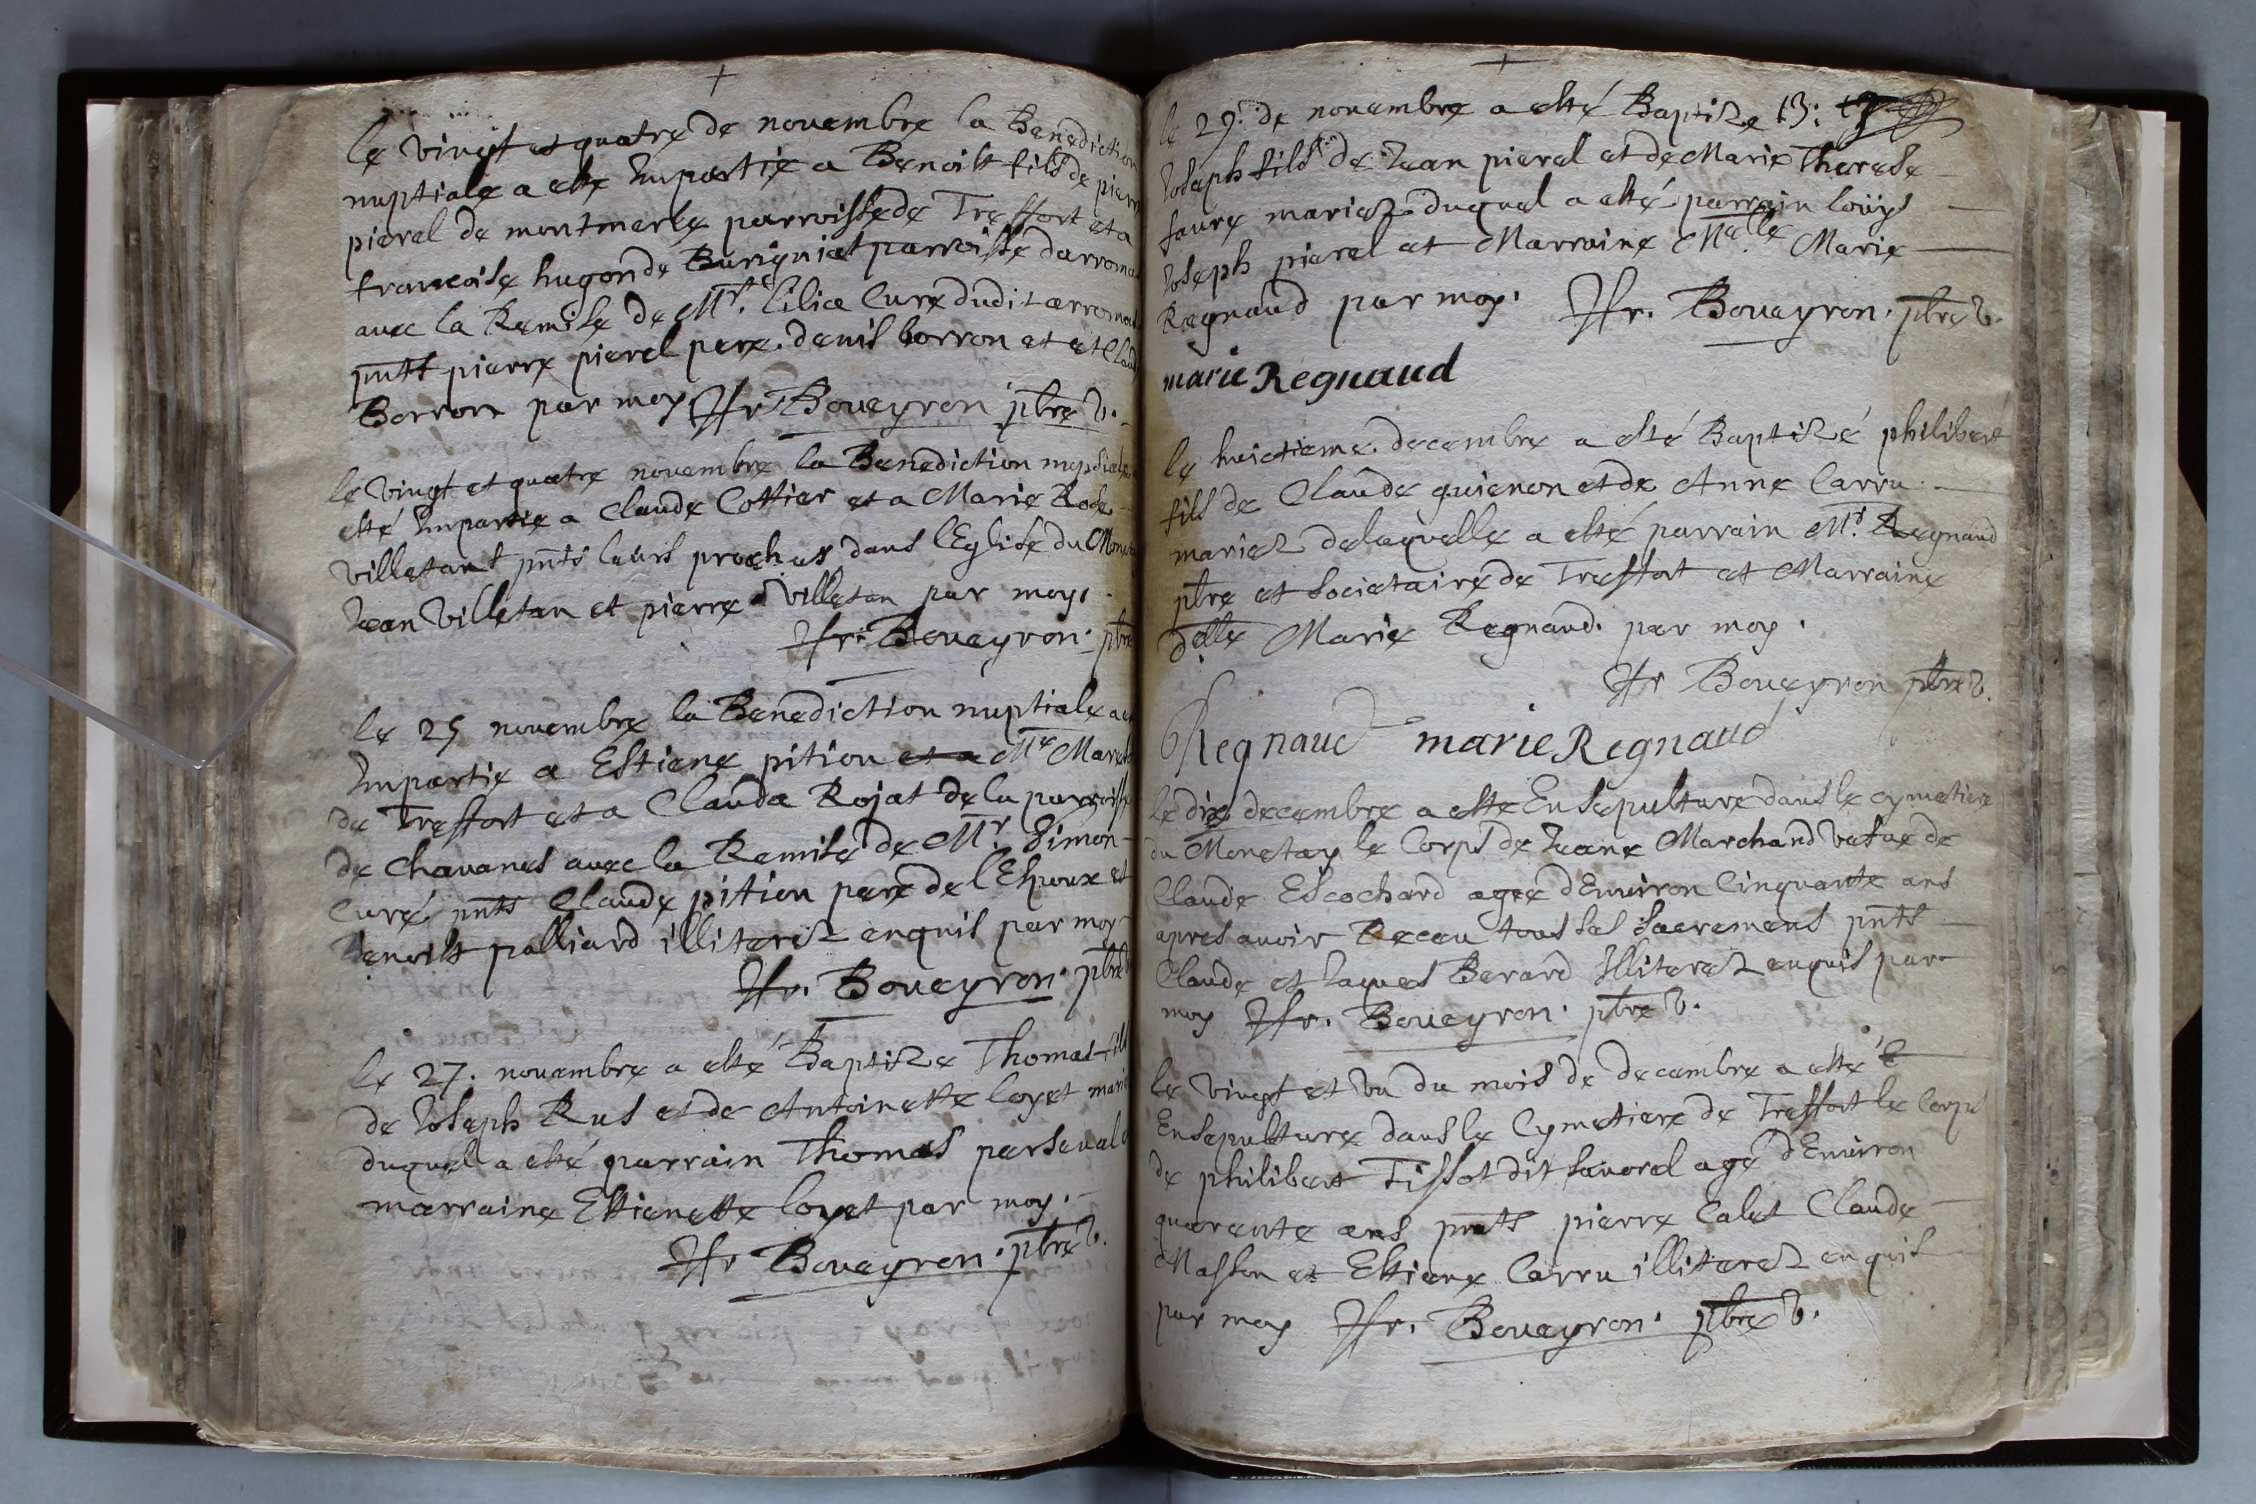 le vingt et quatre de novembre la Benediction
nuptiale a este Impartie a Benoist fils de pierre
pierel de montmerle parroisse de Treffort et a
francoise hugon de Burigniat parroisse darroma
avec la Remise de Mr. Cure dudit arromas
pnts pierre pierel pere. denis borron et et Claude
Borron par moy Fr Boueyron ptre v.
le vingt et quatre novembre la Benediction nuptiale a
esté Impartie a Claude Cottier et a Marie Rose
villetant pnts leurs proches dans l'Eglise du
Jean Villetan et pierre Villetan par moy.
Fr. Boueyron. ptre
le 25 novembre la Benediction nuptiale a
Impartie a Estiene pition
de Treffort et a Clauda Rojat de la parroisse
de Chavanes avec la Remise de Mr. Simon
Curé pnts Claude pition pere de l'Espoux et
Benoist palliard illiterez enquis par moy
Fr. Boueyron. ptre v
le 27. novembre a esté Baptize Thomas fils
de Joseph Rus et de Antoinette loyet marie
duquel a esté parrain Thomas parseval
marraine Estienette loyet par moy.
Fr Boueyron. ptre v.
le 29. de novembre a esté Baptize
Joseph fils de Jean pierel et de Marie Therese
faure mariez duquel a esté parrain loüys
Joseph pierel et Marraine Marie
Regnaud par moy. Fr. Boueyron. ptre v.
marie Regnaud
le huictieme. decembre a esté Baptizé philibert
fils de Claude guienon et de Anne Carru.
mariez delaquelle a esté parrain Mr. Regnaud
ptre et societaire de Treffort et Marraine
delle Marie Regnaud. par moy.
Fr Boueyron ptre v.
Regnaud marie Regnaud
le dix decembre a este Ensepulture dans le cymetiere
du Monetay le Corps de Jeane Marchand vefve de
Claude Escochard agee d'Environ Cinquante ans
apres avoir Receu tous ses sacremens pnts
Claude et Jaques Berard Illiterez enquis par
moy Fr. Boueyron. ptre v.
le vingt et un du mois de decembre a esté
Ensepulture dans le Cymetiere de Treffort le Corps
de philibert Tissot dit savorel agé d'Environ
quarente ans pnts pierre Calet Claude
Masson et Estiene Carru illiterez enquis
par moy Fr. Boueyron. ptre v.